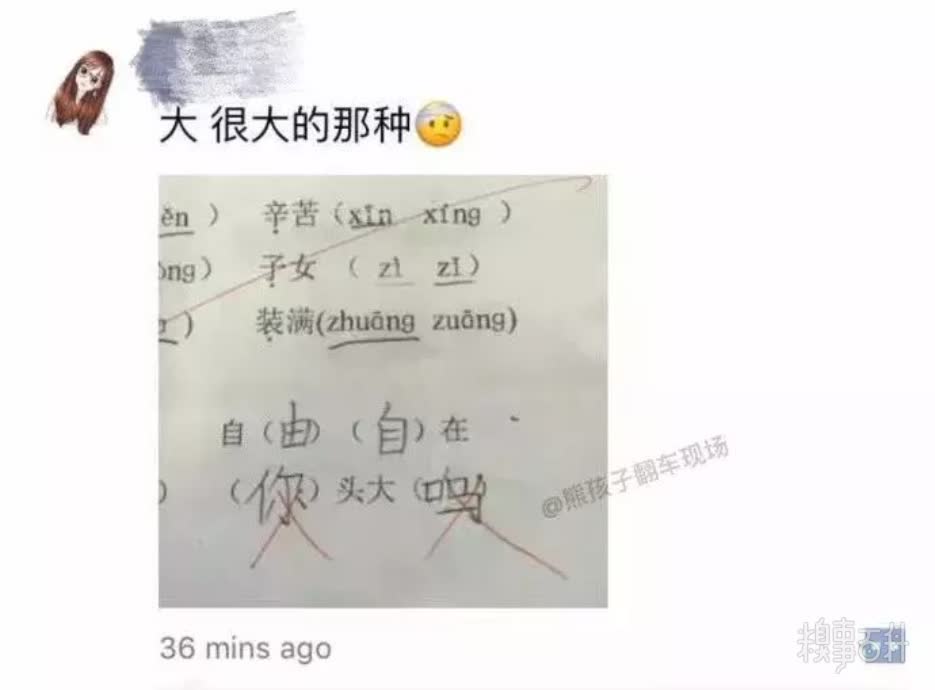 大 很大的那种🤕
ěn ） 辛苦（xīn xíng ）
ong） 子女 （ zì zǐ）
） 装满(zhuāng zuāng)
自（由）（自）在
） （你）头大（吗）
@熊孩子翻车现场
36 mins ago
糗事百科